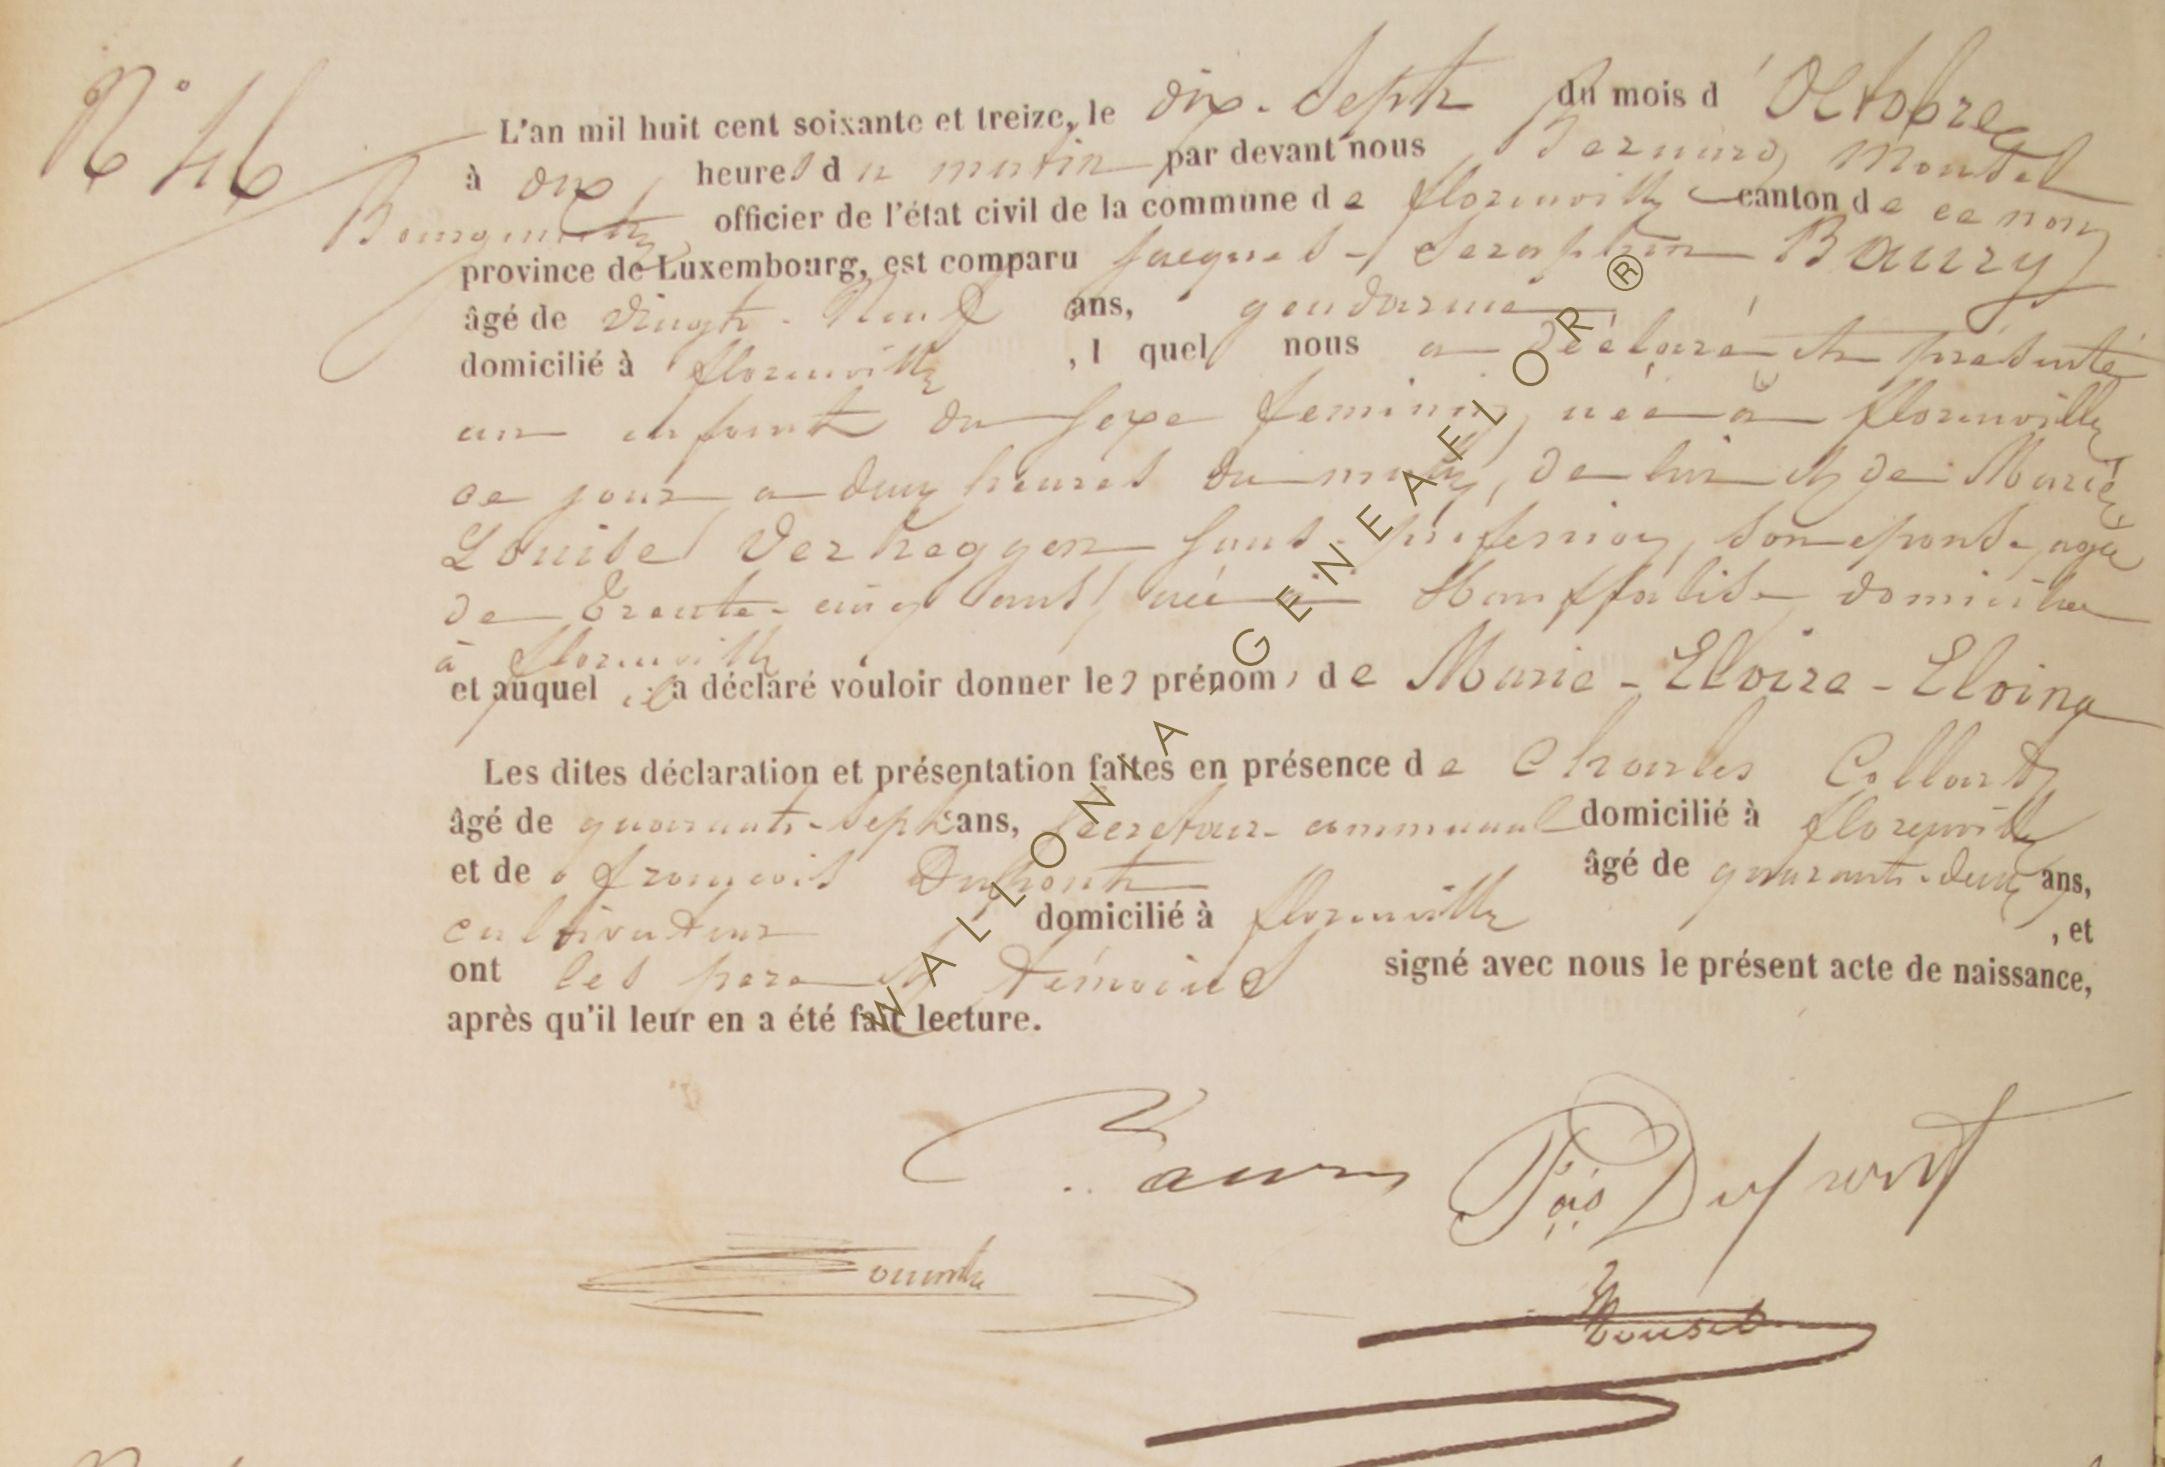 N° 46
L'an mil huit cent soixante et treize, le dix-Sept du mois d'Octobre
à dix heures du matin par devant nous Bernard Mousel
Bourgmestre, officier de l'état civil de la commune de florenville canton de ce nom
province de Luxembourg, est comparu Jacques-Seraphin Baury
âgé de vingt-Neuf ans, gendarme
domicilié à florenville, lequel nous a déclaré et présenté
un enfant du sexe feminin, née à florenville
ce jour a deux heures du matin, de lui et de Marie
Louise Verheggen sans profession, son epouse, agée
de Trente-cinq ans, née à Houffalise domiciliée
à florenville
et auquel il a déclaré vouloir donner les prénoms de Marie-Elvire-Eloina
Les dites déclaration et présentation faites en présence de Charles Collard
âgé de quarante-Sept ans, Secretaire communal domicilié à florenville
et de françois Dupont âgé de quarante-deux ans,
cultivateur domicilié à florenville, et
ont les pere et témoins signé avec nous le présent acte de naissance,
après qu'il leur en a été fait lecture.
Baury Fçois Dupont
Mousel
WALLONIA - GENEAFLOR ®